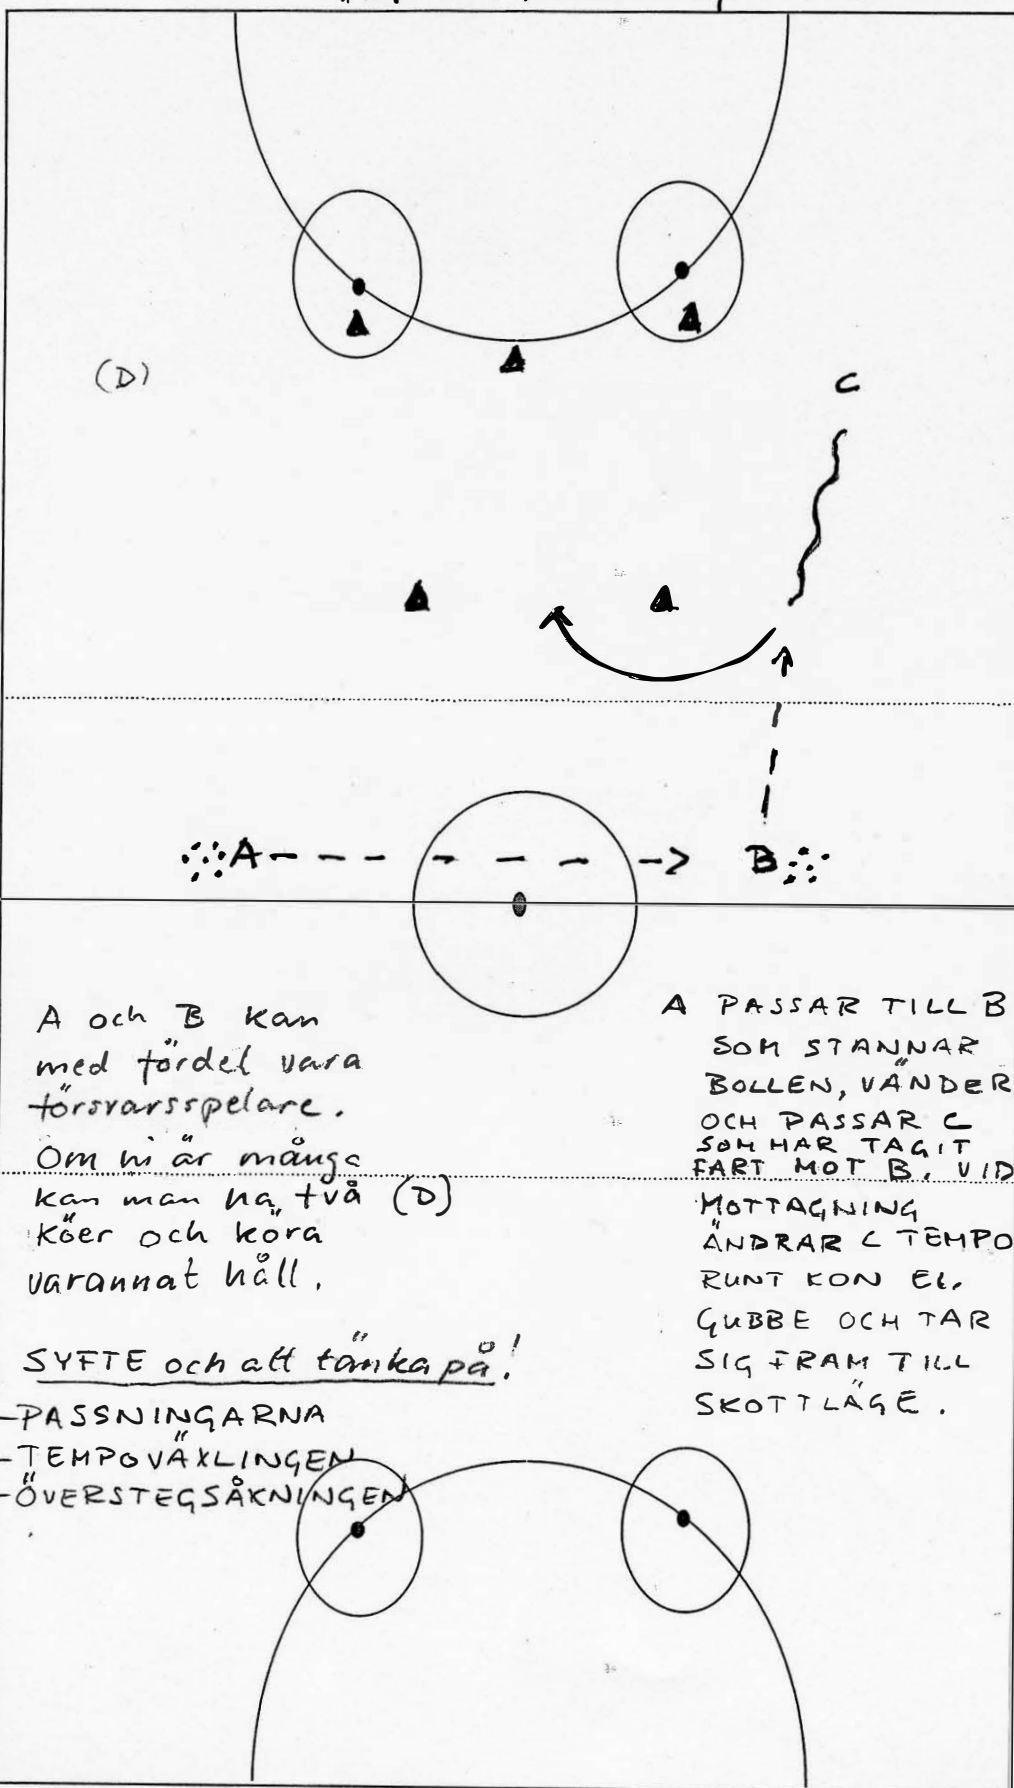 (D)
C
A
B
A och B kan
med fördel vara
försvarsspelare.
Om ni är många
kan man ha två (D)
köer och köra
varannat håll.
SYFTE och att tänka på!
-PASSNINGARNA
-TEMPOVÄXLINGEN
-ÖVERSTEGSÅKNINGEN
A PASSAR TILL B
SOM STANNAR
BOLLEN, VÄNDER
OCH PASSAR C
SOM HAR TAGIT
FART MOT B. VID
MOTTAGNING
ÄNDRAR C TEMPO
RUNT KON EL.
GUBBE OCH TAR
SIG FRAM TILL
SKOTTLÄGE.